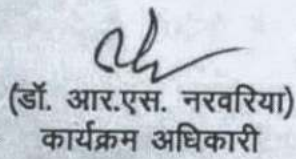 (डॉ. आर.एस. नरवरिया)
कार्यक्रम अधिकारी